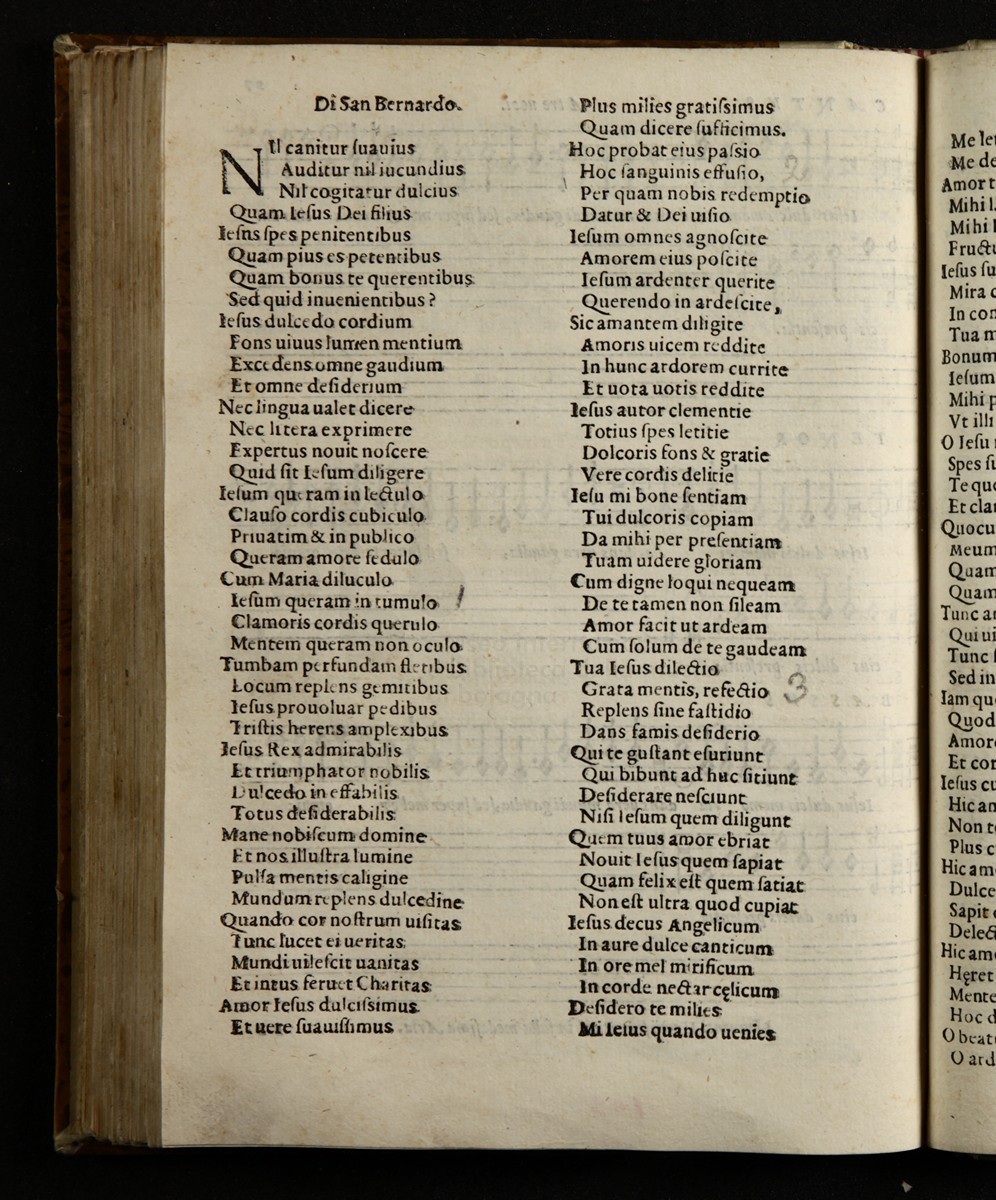 Di San Bernardo.
NIl canitur ſuauius
Auditur nil iucundius
Nil cogitatur dulcius
Quam Ieſus Dei filius
Ieſus ſpes penitentibus
Quam pius es petentibus
Quam bonus te querentibus
Sed quid inuenientibus?
Ieſus dulcedo cordium
Fons uiuus lumen mentium
Excedens omne gaudium
Et omne deſiderium
Nec lingua ualet dicere
Nec litera exprimere
Expertus nouit noſcere
Quid ſit Ieſum diligere
Ieſum queram in lectulo
Clauſo cordis cubiculo
Priuatim & in publico
Queram amore ſedulo
Cum Maria diluculo
Ieſum queram in tumulo
Clamoris cordis querulo
Mentem queram non oculo
Tumbam perfundam fletibus
Locum replens gemitibus
Ieſus prouoluar pedibus
Triſtis herens amplexibus
Ieſus Rex admirabilis
Et triumphator nobilis
Dulcedo in effabilis
Totus deſiderabilis
Mane nobiſcum domine
Et nos illuſtra lumine
Pulſa mentis caligine
Mundum replens dulcedine
Quando cor noſtrum uiſitas
Tunc lucet ei ueritas
Mundi uileſcit uanitas
Et intus feruet Charitas
Amor Ieſus dulciſsimus
Et uere ſuauiſſimus
Plus milies gratiſsimus
Quam dicere ſufficimus.
Hoc probat eius paſsio
Hoc ſanguinis effuſio,
Per quam nobis redemptio
Datur & Dei uiſio
Ieſum omnes agnoſcite
Amorem eius poſcite
Ieſum ardenter querite
Querendo in ardeſcite,
Sic amantem diligite
Amoris uicem reddite
In hunc ardorem currite
Et uota uotis reddite
Ieſus autor clementie
Totius ſpes letitie
Dolcoris fons & gratie
Vere cordis delitie
Ieſu mi bone ſentiam
Tui dulcoris copiam
Da mihi per preſentiam
Tuam uidere gloriam
Cum digne loqui nequeam
De te tamen non ſileam
Amor facit ut ardeam
Cum ſolum de te gaudeam
Tua Ieſus dilectio
Grata mentis, refectio 3
Replens ſine faſtidio
Dans famis deſiderio
Qui te guſtant eſuriunt
Qui bibunt ad huc ſitiunt
Deſiderare neſciunt
Niſi Ieſum quem diligunt
Quem tuus amor ebriat
Nouit Ieſus quem ſapiat
Quam felix eſt quem ſatiat
Non eſt ultra quod cupiat
Ieſus decus Angelicum
In aure dulce canticum
In ore mel mirificum
In corde nectar cęlicum
Deſidero te milies
Mi Ieſus quando uenies
Me
Me de
Amor t
Mihi
Mihi
Fructu
Ieſus ſu
Mira
In con
Tua
Bonum
Ieſum
Mihi p
Vt illi
O Ieſu
Spes ſu
Te que
Et cla
Quocu
Meum
Quam
Quam
Tunc a
Qui ui
Tunc
Sed in
Iam qu
Quod
Amor
Et cor
Ieſus cu
Hic am
Non t
Plus c
Hic am
Dulce
Sapit
Delec
Hic am
Hęret
Mente
Hoc d
O beat
O ard